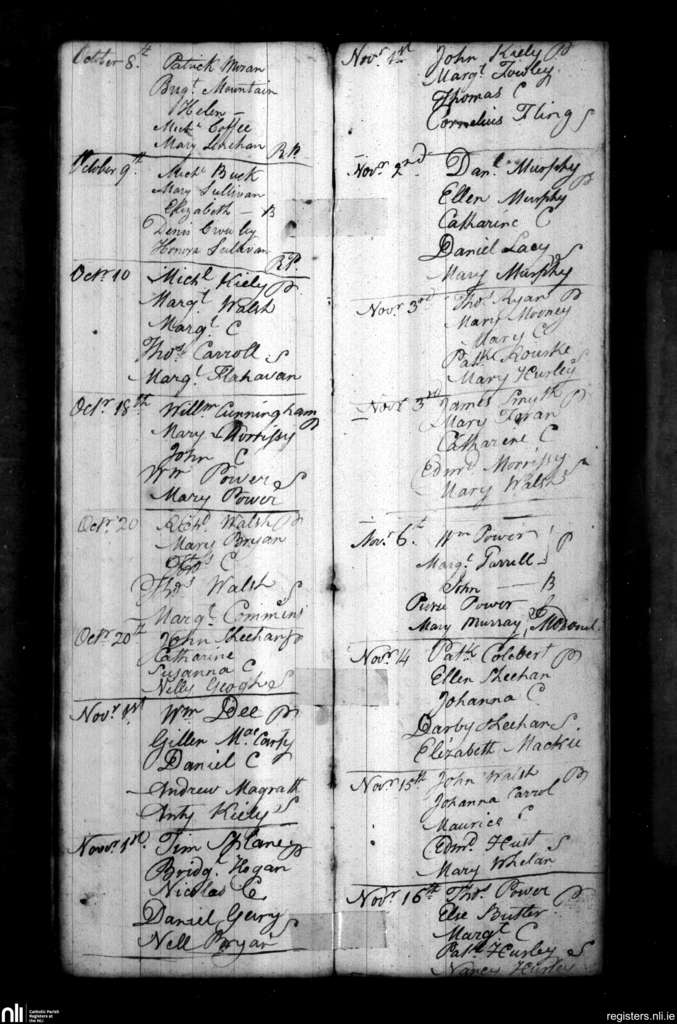 October 8th Patrick Moran
Brigt Mountain
Helen —
Michl Coffee
Mary Lenehan R.P.
October 9th Michl Buck
Mary Sullivan
Elizabeth — B
Denis Crowley
Honora Sulavan
R.P.
Octr 10 Michl Kiely P
Margt Walsh
Margt C
Thos Carroll S
Margt Flahavan
Octr 18th Willm Cunningham
Mary Morrissy P
John C
Wm Power S
Mary Power
Octr 20 Richd Walsh P
Mary Bryan
Thos C
Thos Walsh S
Margt Commins
Octr 20th John Sheehan P
Catharine
Susanna C
Nelly Geoghe S
Novr 1st Wm Dee P
Gillen MacCarty
Daniel C
Andrew Magrath
Anty Kiely S
Novr 1st Tim Splane P
Bridgt Hogan
Nicolas C
Daniel Gery S
Nell Bryan
Novr 1st John Kiely P
Margt Towley
Thomas C
Cornelius Fling S
Novr 2nd Danl Murphy P
Ellen Murphy
Catharine C
Daniel Lacy S
Mary Murphy
Novr 3rd Thos Ryan P
Mary Mooney
Mary C
Patk Rourke
Mary Hurley S
Novr 3rd James Smyth P
Mary Foran
Catharine C
Edmd Morrissy S
Mary Walsh
Novr 6t Wm Power P
Margt Farrell
John — B
Pierse Power S
Mary Murray
Novr 14 Patk Colebert P
Ellen Sheehan
Johanna C
Darby Sheehan S
Elizabeth Mackie
Novr 15th John Walsh P
Johanna Carrol
Maurice C
Edmd Hust S
Mary Whelan
Novr 16th Thos Power P
Else Butler
Margt C
Patk Hurley S
Nancy Hurley
nli Catholic Parish
Registers at
the NLI
registers.nli.ie